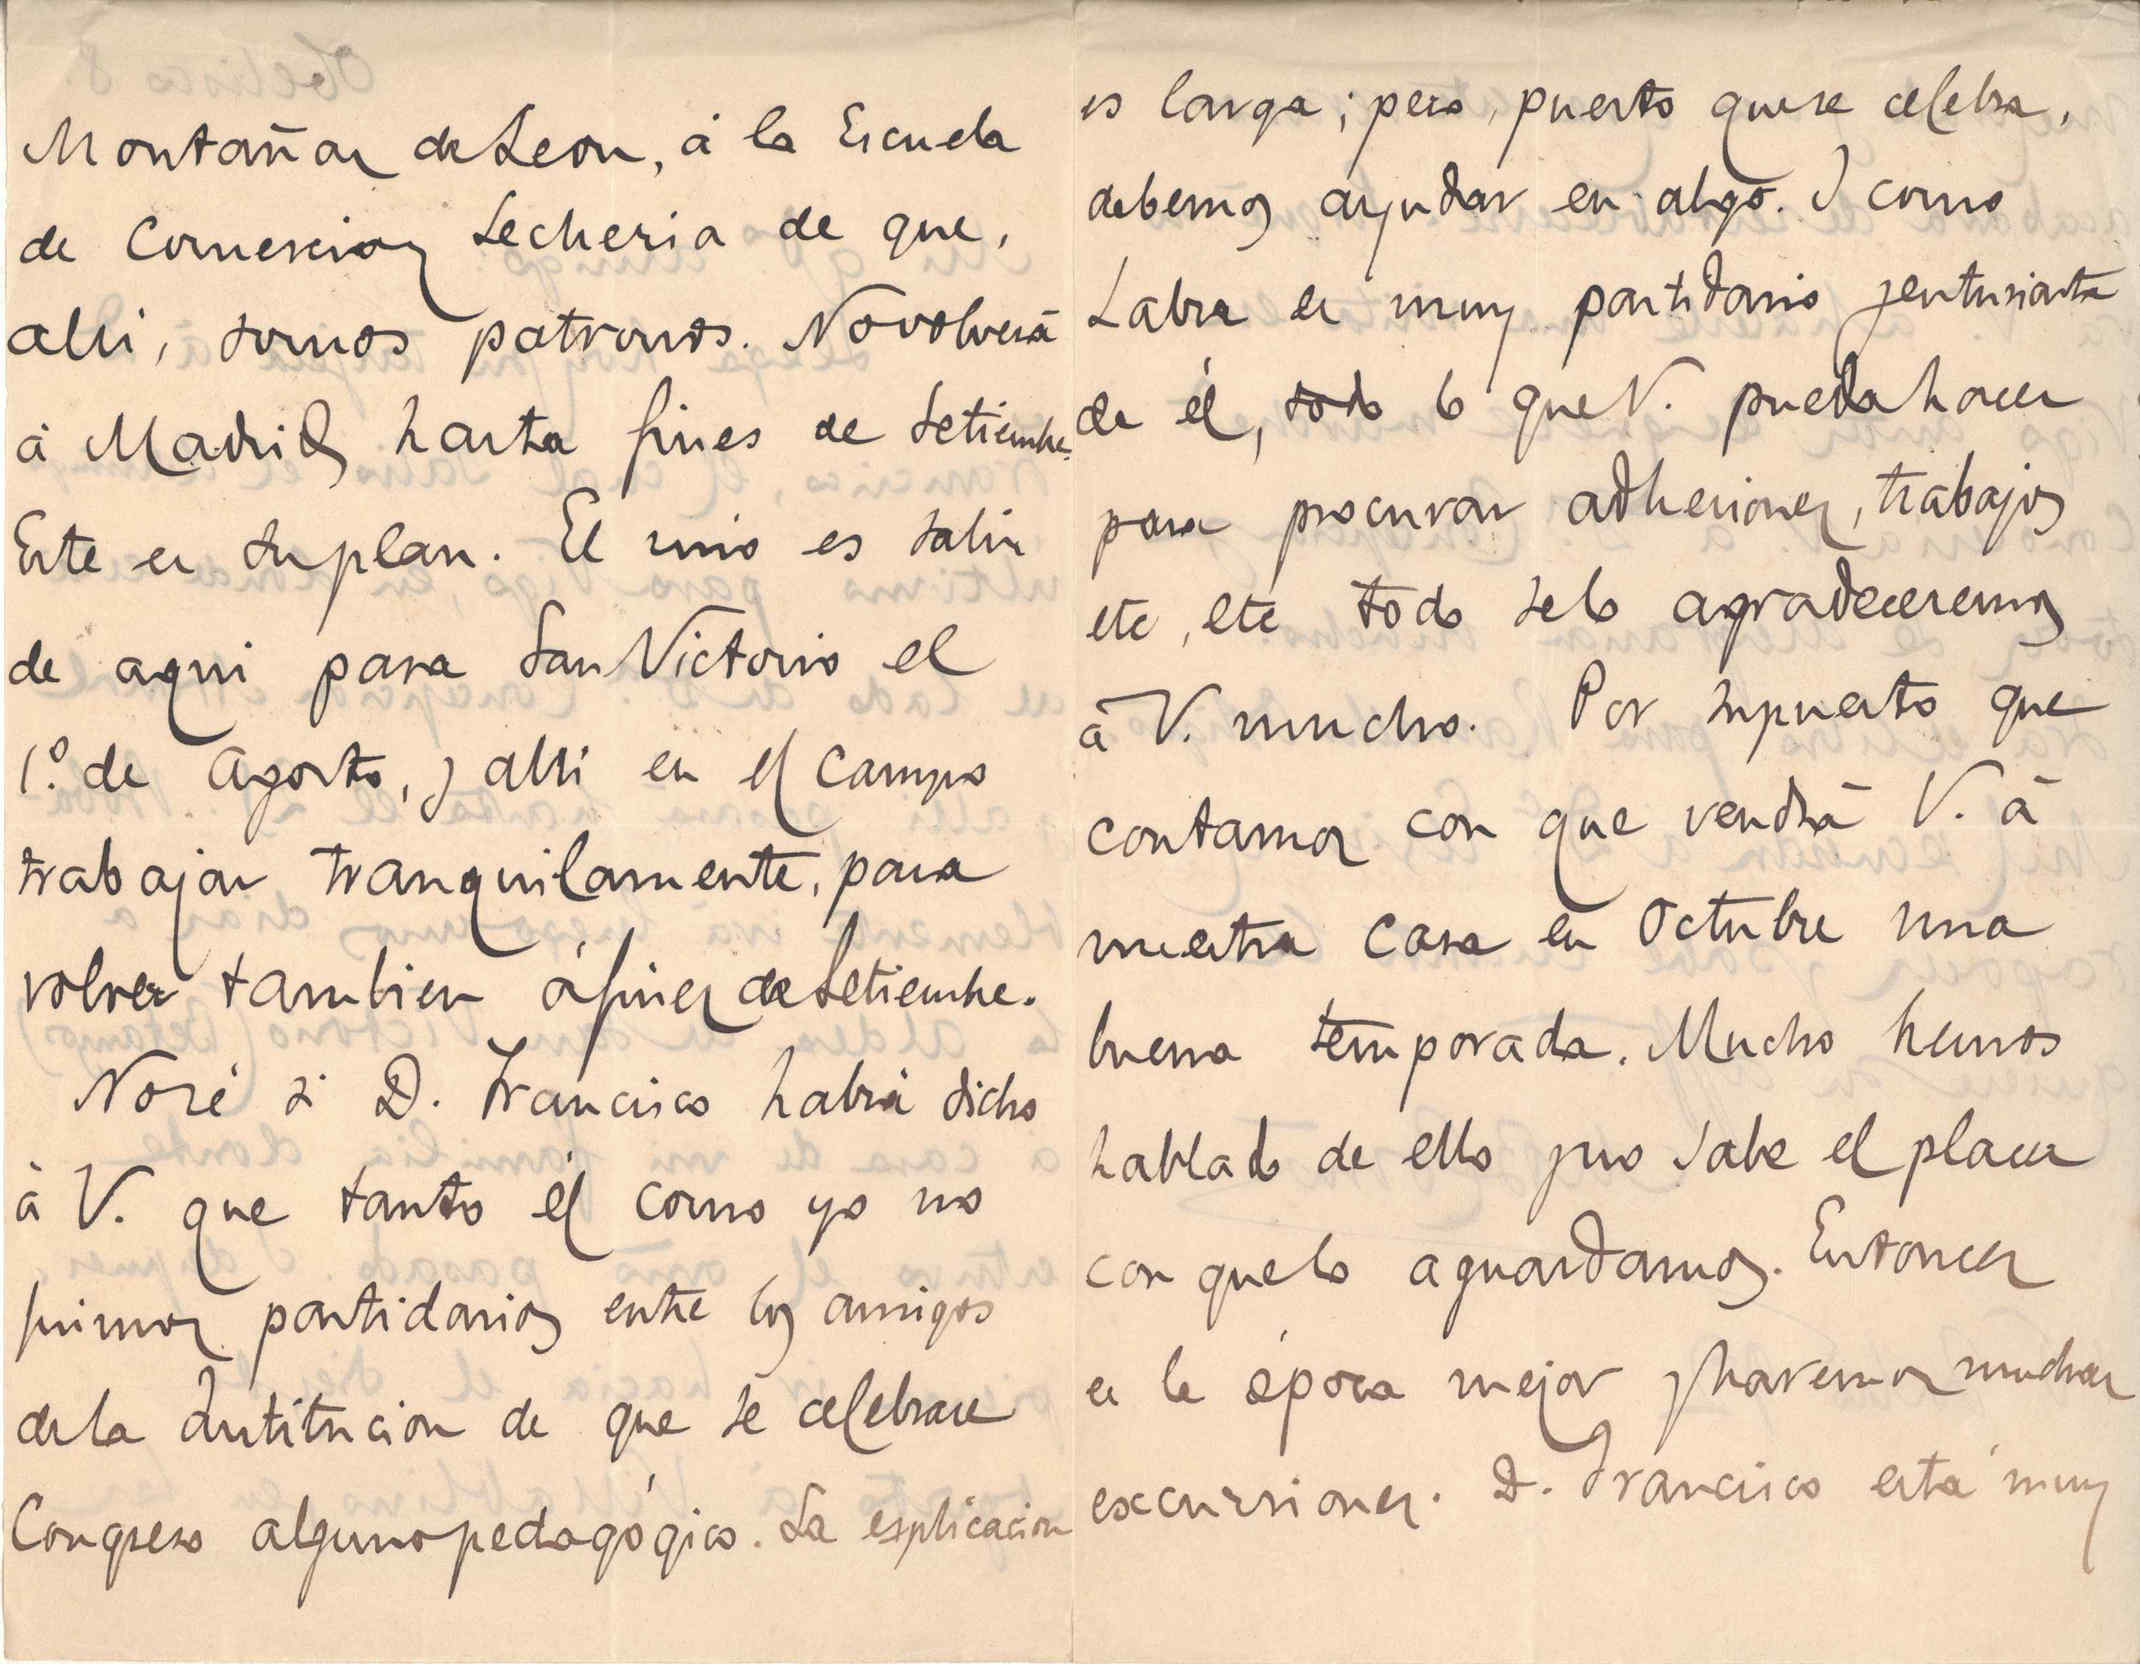 Montañas de Leon, á la Escuela
de Comercio y Lecheria de que,
alli, somos patronos. No volverá
á Madrid hasta fines de Setiembre.
Este es su plan. El mio es salir
de aqui para San Victorio el
1.º de Agosto, y alli en el campo
trabajar tranquilamente, para
volver tambien á fines de Setiembre.
No sé si D. Francisco habrá dicho
á V. que tanto él como yo no
fuimos partidarios entre los amigos
de la Institucion de que se celebrase
Congreso alguno pedagógico. La esplicacion
es larga; pero, puesto que se celebra,
debemos ayudar en algo. I como
Labra es muy partidario y entusiasta
de él, todo lo que V. pueda hacer
para procurar adhesiones, trabajos
etc, etc todo se lo agradeceremos
á V. mucho. Por supuesto que
contamos con que vendrá V. á
nuestra casa en Octubre una
buena temporada. Mucho hemos
hablado de ello y no sabe el placer
con que lo aguardamos. Entonces
es la época mejor y haremos muchas
excursiones. D. Francisco está muy